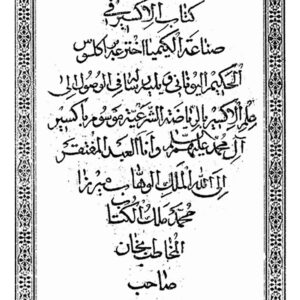 كتاب الاكسير في
صناعة الكيميا
الحكيم اليوناني في الوصول الى
علم الاكسير بالرياضة الشرعية موسوم باكسير
آل محمد عليهم وانا العبد المفتقر
الى الله الملك الوهاب ميرزا
محمد ملك الكتاب
المخاطب بخان
صاحب